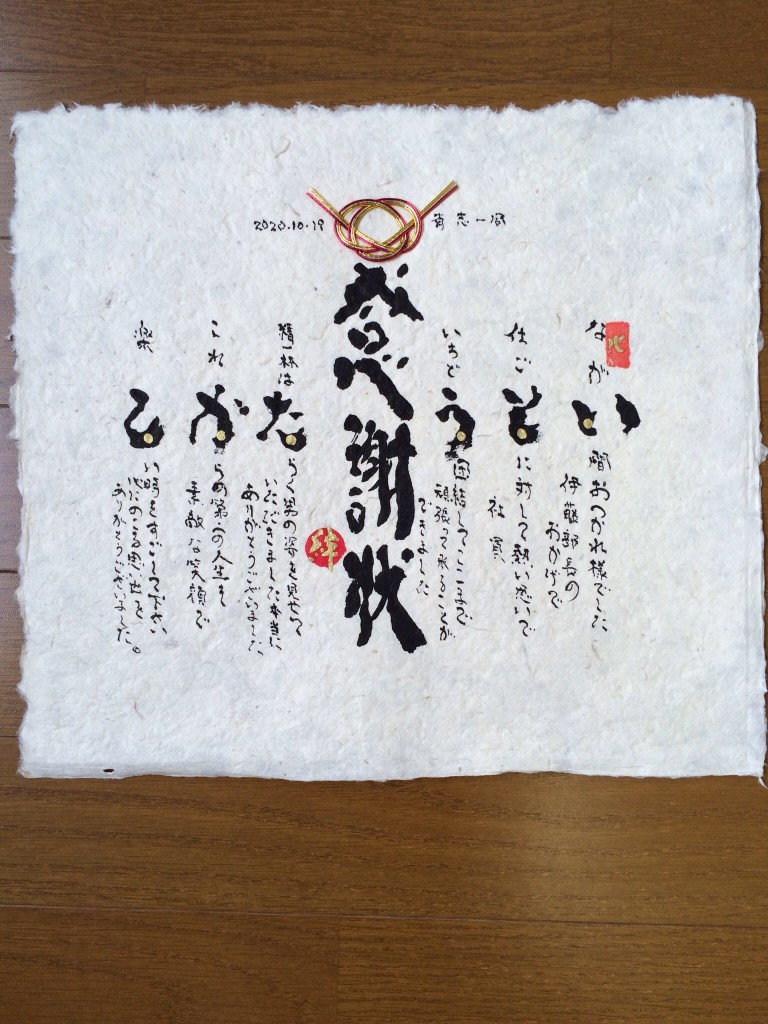 ながい間おつかれ様でした
伊藤部長の
おかげで
仕ごとに対して熱い思いで
社員
いちどう団結してここまで
頑張って来ることが
できました
2020.10.19
有志一同
感謝状
絆
精一杯はたらく男の姿を見せて
いただきました本当に
ありがとうございました
これからの第二の人生も
素敵な笑顔で
楽しい時をすごして下さい
心にのこる思い出を
ありがとうございました。